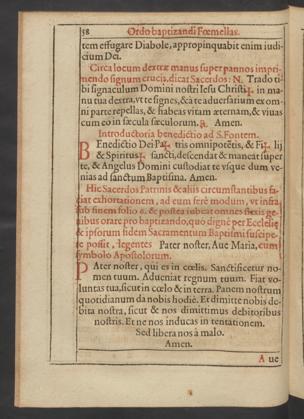 58 Ordo baptizandi Fœmellas.
tem effugare Diabole, appropinquabit enim iudi-
cium Dei.
Circa locum dextræ manus super pannos impri-
mendo signum crucis, dicat Sacerdos: N. Trado ti-
bi signaculum Domini nostri Iesu Christi ✠. in ma-
nu tua dextra, vt te signes, & à te aduersarium ex om-
ni parte repellas, & habeas vitam æternam, & viuas
cum eo in sæcula sæculorum. ℟. Amen.
Introductoria benedictio ad S. Fontem.
Benedictio Dei Pa✠tris omnipotẽtis, & Fi✠lij
& Spiritus✠ sancti, descendat & maneat super
te, & Angelus Domini custodiat te vsque dum ve-
nias ad sanctum Baptisma. Amen.
Hic Sacerdos Patrinis & aliis circumstantibus fa-
ciat exhortationem, ad eum ferè modum, vt infra
sub finem folio & postea iubeat omnes flexis ge-
nibus orare pro baptizando, quò dignè per Ecclesiæ
& ipsorum fidem Sacramentum Baptismi suscipe-
re possit, legentes Pater noster, Aue Maria, cum
symbolo Apostolorum.
Pater noster, qui es in cœlis. Sanctificetur no-
men tuum. Adueniat regnum tuum. Fiat vo-
luntas tua, sicut in cœlo & in terra. Panem nostrum
quotidianum da nobis hodiè. Et dimitte nobis de-
bita nostra, sicut & nos dimittimus debitoribus
nostris. Et ne nos inducas in tentationem.
Sed libera nos à malo.
Amen.
A ue